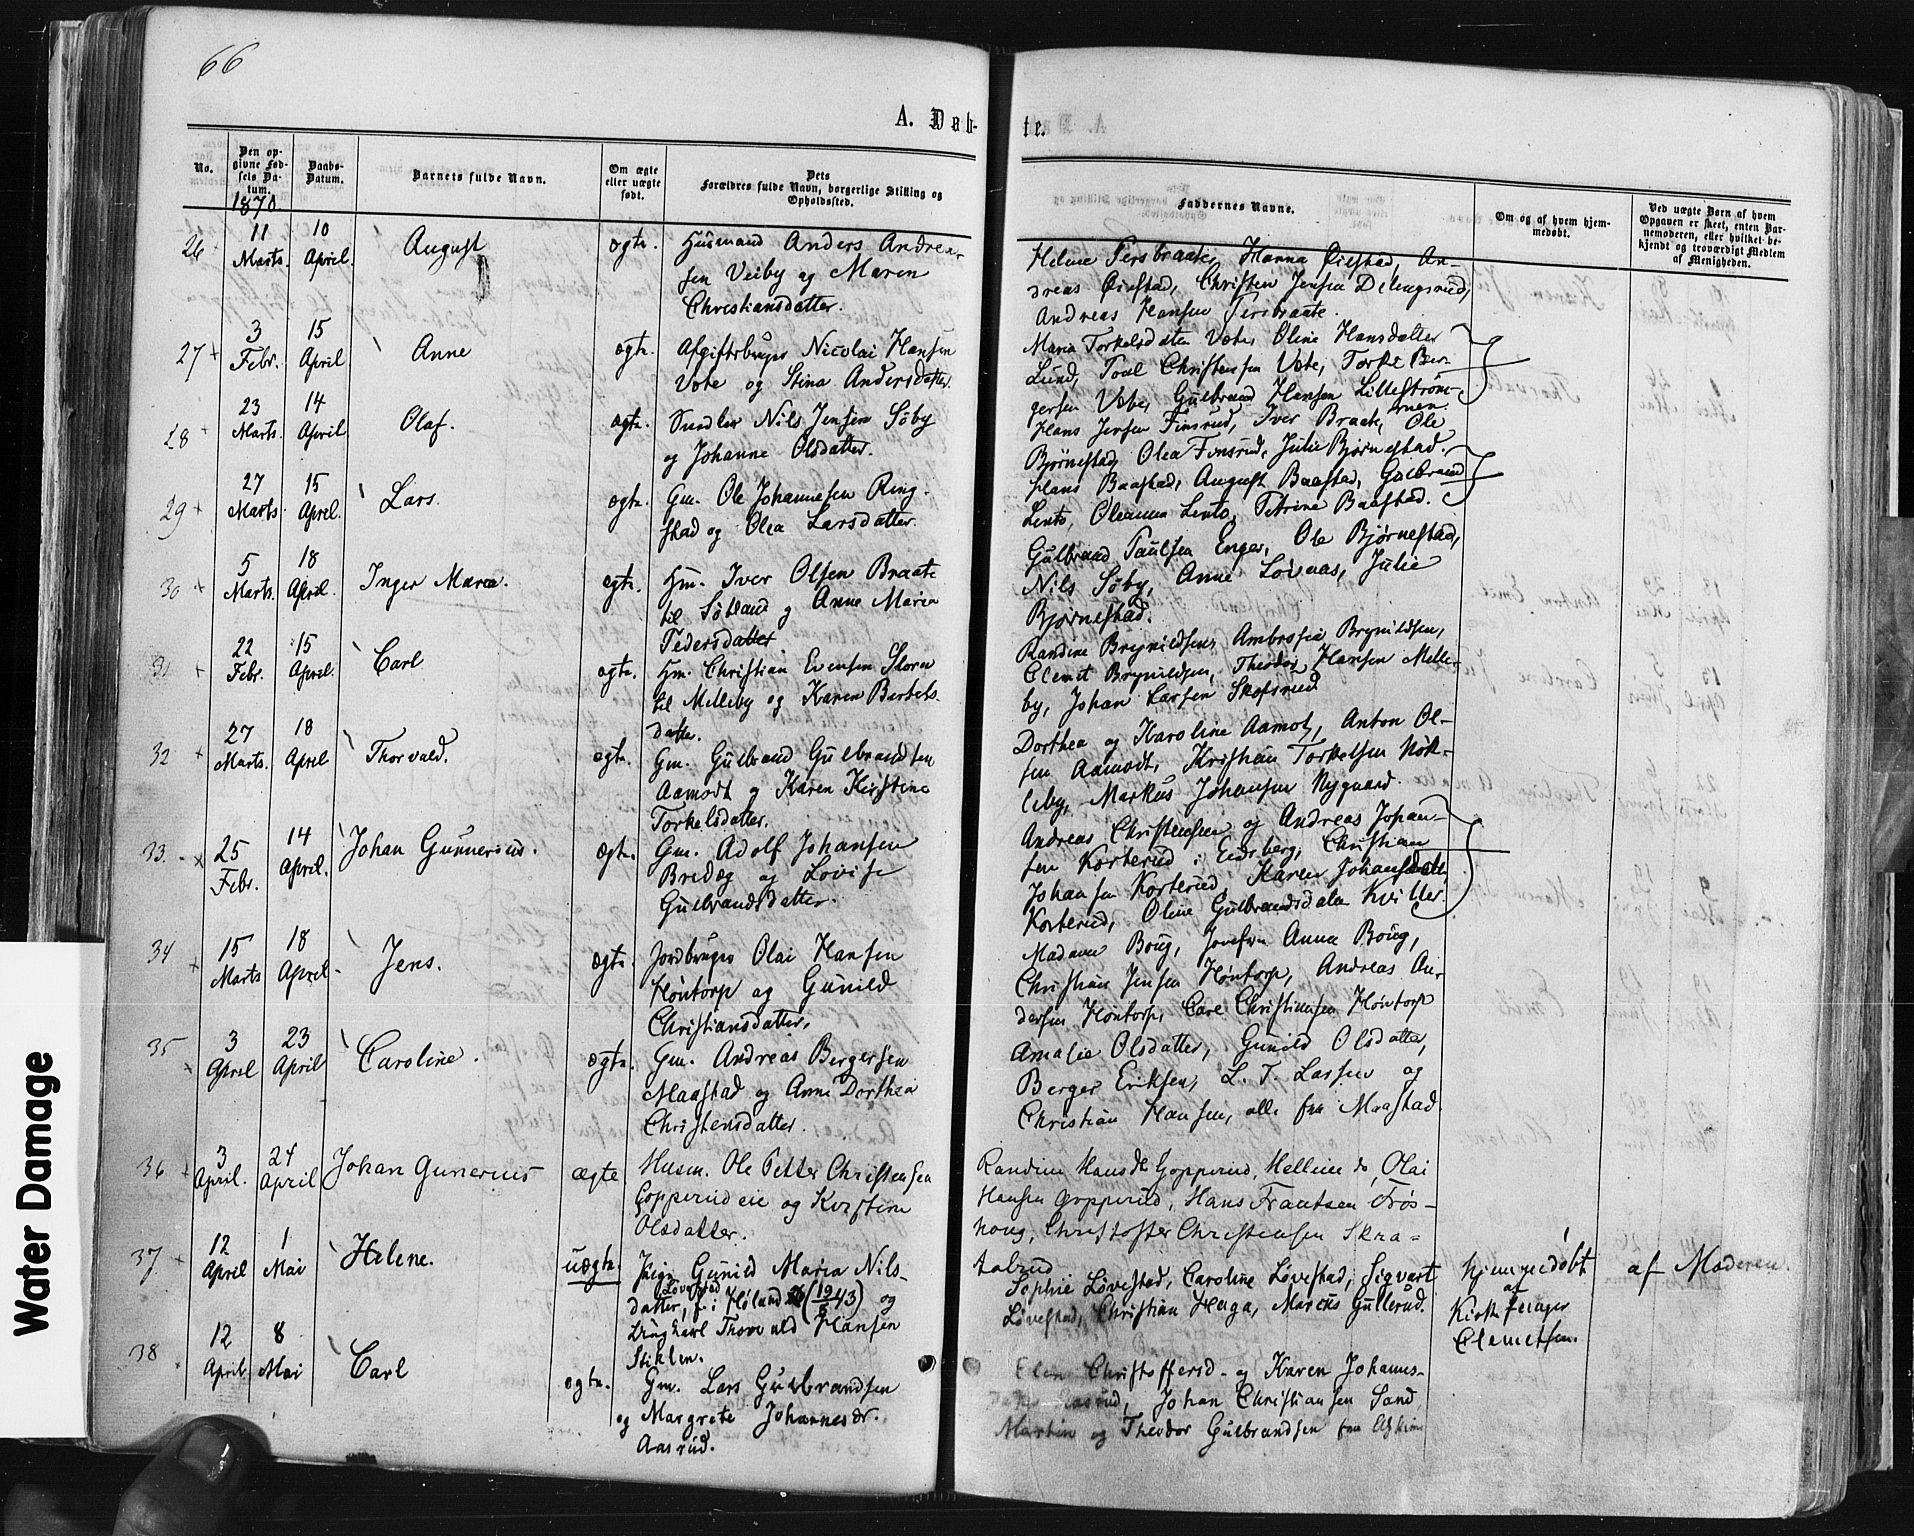 66
A. Døb-
te.
No.
Den op-
givne Fød-
sels Da-
tum.
Daabs-
Datum.
Barnets fulde Navn.
Om ægte
eller uægte
født.
Dets
Forældres fulde Navn, borgerlige Stilling og
Opholdssted.
Faddernes Navne.
Om og af hvem hjem-
medøbt.
Ved uægte Børn af hvem
Opgaven er skeet, enten Bar-
nemoderen, eller hvilket be-
kjendt og troværdigt Medlem
af Menigheden.
1870
26
11 Marts.
10 April.
August
ægte.
Husmand Anders Andrea-
sen Veiby og Maren
Christiansdatter.
Helene Tersbraate, Hanna Øiestad, An-
dreas Øiestad, Christian Jensen Dilingsrud,
Andreas Hansen Tersbraate.
27
3 Febr.
15 April
Anne
ægte.
Afgiftsbruger Nicolai Hansen
Vote og Stina Andersdatter.
Maria Torkelsdatter Vote, Oline Hansdatter
Lund, Poul Christensen Vote, Torkel Ber-
gersen Vote, Gulbrand Hansen Lillestrøm-
men.
28
23 Marts.
14 April
Olaf.
ægte.
Snedker Nils Jensen Søby
og Johanne Olsdatter.
Hans Jensen Finsrud, Iver Braate, Ole
Bjørnestad, Olea Finsrud, Julie Bjørnestad.
29
27 Marts
15 April.
Lars.
ægte.
Gm. Ole Johannesen Ring-
stad og Olea Larsdatter.
Hans Baastad, August Baastad, Gulbrand
Lento, Oleanna Lento, Petrine Baastad.
30
5 Marts.
18 April.
Inger Maria.
ægte.
Hm. Iver Olsen Braate
til Søtland og Anne Maria
Pedersdatter
Gulbrand Paulsen Enger, Ole Bjørnestad,
Nils Søby, Anne Løvaas, Julie
Bjørnestad.
31
22 Febr.
15 April.
Carl
ægte.
Hm. Christian Evensen Storen
til Melleby og Karen Bertels-
datter.
Randine Brynildsen, Ambrosia Brynildsen,
Clemet Brynildsen, Theodor Hansen Melle-
by, Johan Larsen Skofsrud
32
27 Marts.
18 April
Thorvald.
ægte.
Gm. Gulbrand Gulbrandsen
Aamodt og Karen Kirstine
Torkelsdatter.
Dorthea og Karoline Aamot, Anton Ol-
sen Aamodt, Kristian Torkelsen Nøk-
leby, Markus Johansen Nygaard.
33.
25 Febr.
14 April.
Johan Gunnerius.
ægte.
Gm. Adolf Johansen
Bredeg og Lovise
Gulbrandsdatter.
Andreas Christensen og Andreas Johan-
sen Korterud i Eidsberg, Christian
Johansen Korterud, Karen Johansdatter
Korterud, Oline Gulbrandsdatter Kviller.
34
15 Marts
18 April.
Jens.
ægte.
Jordbruger Olai Hansen
Høntorp og Gunild
Christiansdatter.
Madame Boug, Josefin Anna Boug,
Christian Jensen Høntorp, Andreas An-
dersen Høntorp, Carl Christiansen Høntorp
35
3 April
23 April
Caroline.
ægte.
Gm. Andreas Bergersen
Maastad og Anne Dorthea
Christensdatter.
Amalie Olsdatter, Gunild Olsdatter,
Berger Eriksen, L. T. Lassen og
Christian Hansen, alle fra Maastad
36
3 April.
24 April
Johan Gunerius
ægte
Husm. Ole Petter Christensen
Gopperudeie og Kirstine
Olsdatter.
Randine Hansdt Gopperud, Helline do, Olai
Hansen Gopperud, Hans Frantsen Frøs-
houg, Christoffer Christensen Skra-
tabrud
37
12 April
1 Mai
Helene.
uægte.
Pige Gunild Maria Nils-
Løvestad
datter, f. i Høland (12/8 43) og
Ungkarl Thorvald Hansen
Stiklen.
Sophie Løvestad, Caroline Løvestad, Sigvart
Løvestad, Christian Haga, Marcus Gullerud.
hjemmedøbt
af
Kirkesanger
Clemetsen.
af Moderen.
38
12 April
8 Mai
Carl
ægte.
Gm. Lars Gulbrandsen
og Margrete Johannesdr.
Aasrud.
Elen Christoffersd. og Karen Johanns-
datter Aasrud, Johan Christiansen Sand
Martin og Theodor Gulbrandsen fra Askim
Water Damage